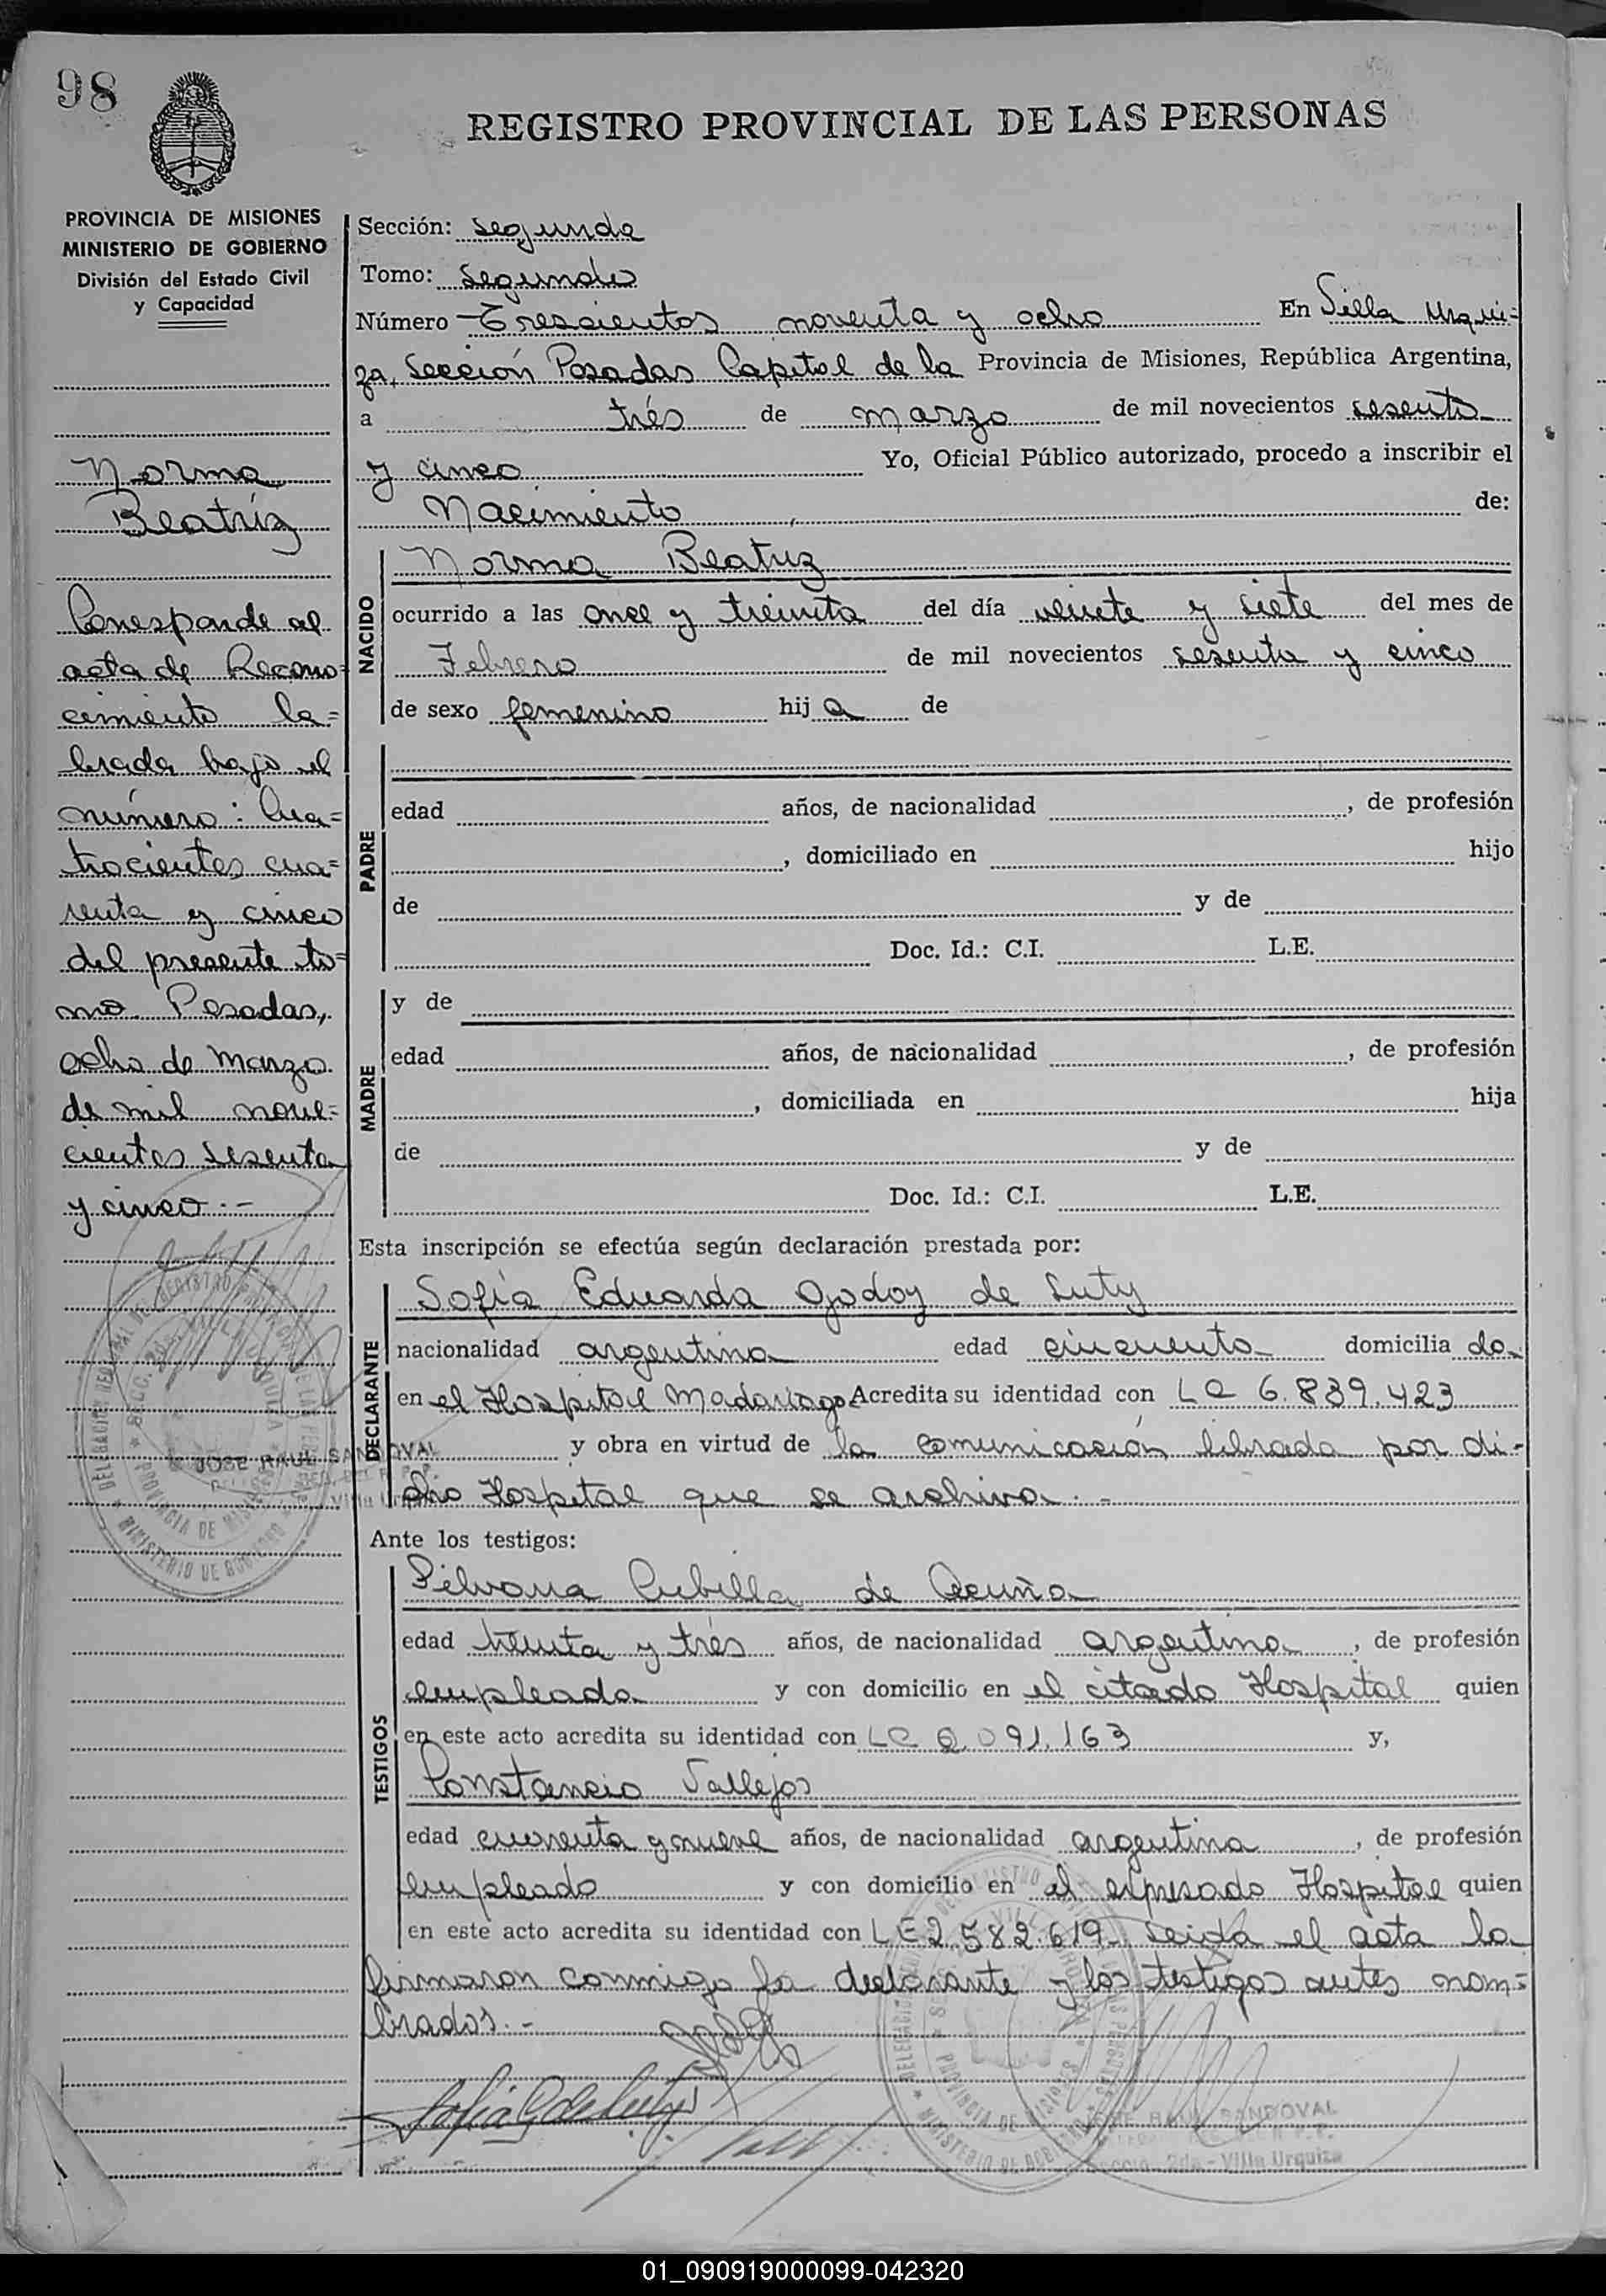 98
REGISTRO PROVINCIAL DE LAS PERSONAS
PROVINCIA DE MISIONES
MINISTERIO DE GOBIERNO
División del Estado Civil
y Capacidad
Norma
Beatríz
Corresponde al
acta de Recono=
cimiento la=
brada bajo el
número: Cua=
trocientos cua=
renta y cinco
del presente to=
mo. Posadas,
ocho de Marzo
de mil nove=
cientos sesenta
y cinco.-
JOSE RAUL SANDOVAL
Sección: Segunda
Tomo: Segundo
Número Trescientos noventa y ocho En Villa Urqui=
za, Sección Posadas Capital de la Provincia de Misiones, República Argentina,
a trés de marzo de mil novecientos sesenta
y cinco Yo, Oficial Público autorizado, procedo a inscribir el
Nacimiento de:
NACIDO
Norma Beatriz
ocurrido a las once y treinta del día veinte y siete del mes de
Febrero de mil novecientos sesenta y cinco
de sexo femenino hij a de
PADRE
edad años, de nacionalidad , de profesión
, domiciliado en hijo
de y de
Doc. Id.: C.I. L.E.
MADRE
y de
edad años, de nacionalidad , de profesión
, domiciliada en hija
de y de
Doc. Id.: C.I. L.E.
Esta inscripción se efectúa según declaración prestada por:
DECLARANTE
Sofía Eduarda Godoy de Luty
nacionalidad argentina edad cincuenta domicilia da
en el Hospital Madariaga Acredita su identidad con LC 6.839.423
y obra en virtud de la comunicación librada por di-
cho Hospital que se archiva.-
Ante los testigos:
TESTIGOS
Silvana Cubilla de Acuña
edad treinta y trés años, de nacionalidad argentina, de profesión
empleada y con domicilio en el citado Hospital quien
en este acto acredita su identidad con LC 091.163 y,
Constancio Vallejos
edad cuarenta y nueve años, de nacionalidad argentina, de profesión
empleado y con domicilio en el expresado Hospital quien
en este acto acredita su identidad con LE 2.582.619 Leída el acta la
firmaron conmigo la declarante y los testigos antes nom=
brados.-
Sofia G de Luty
JOSE RAUL SANDOVAL
Sección 2da - Villa Urquiza
01_090919000099-042320